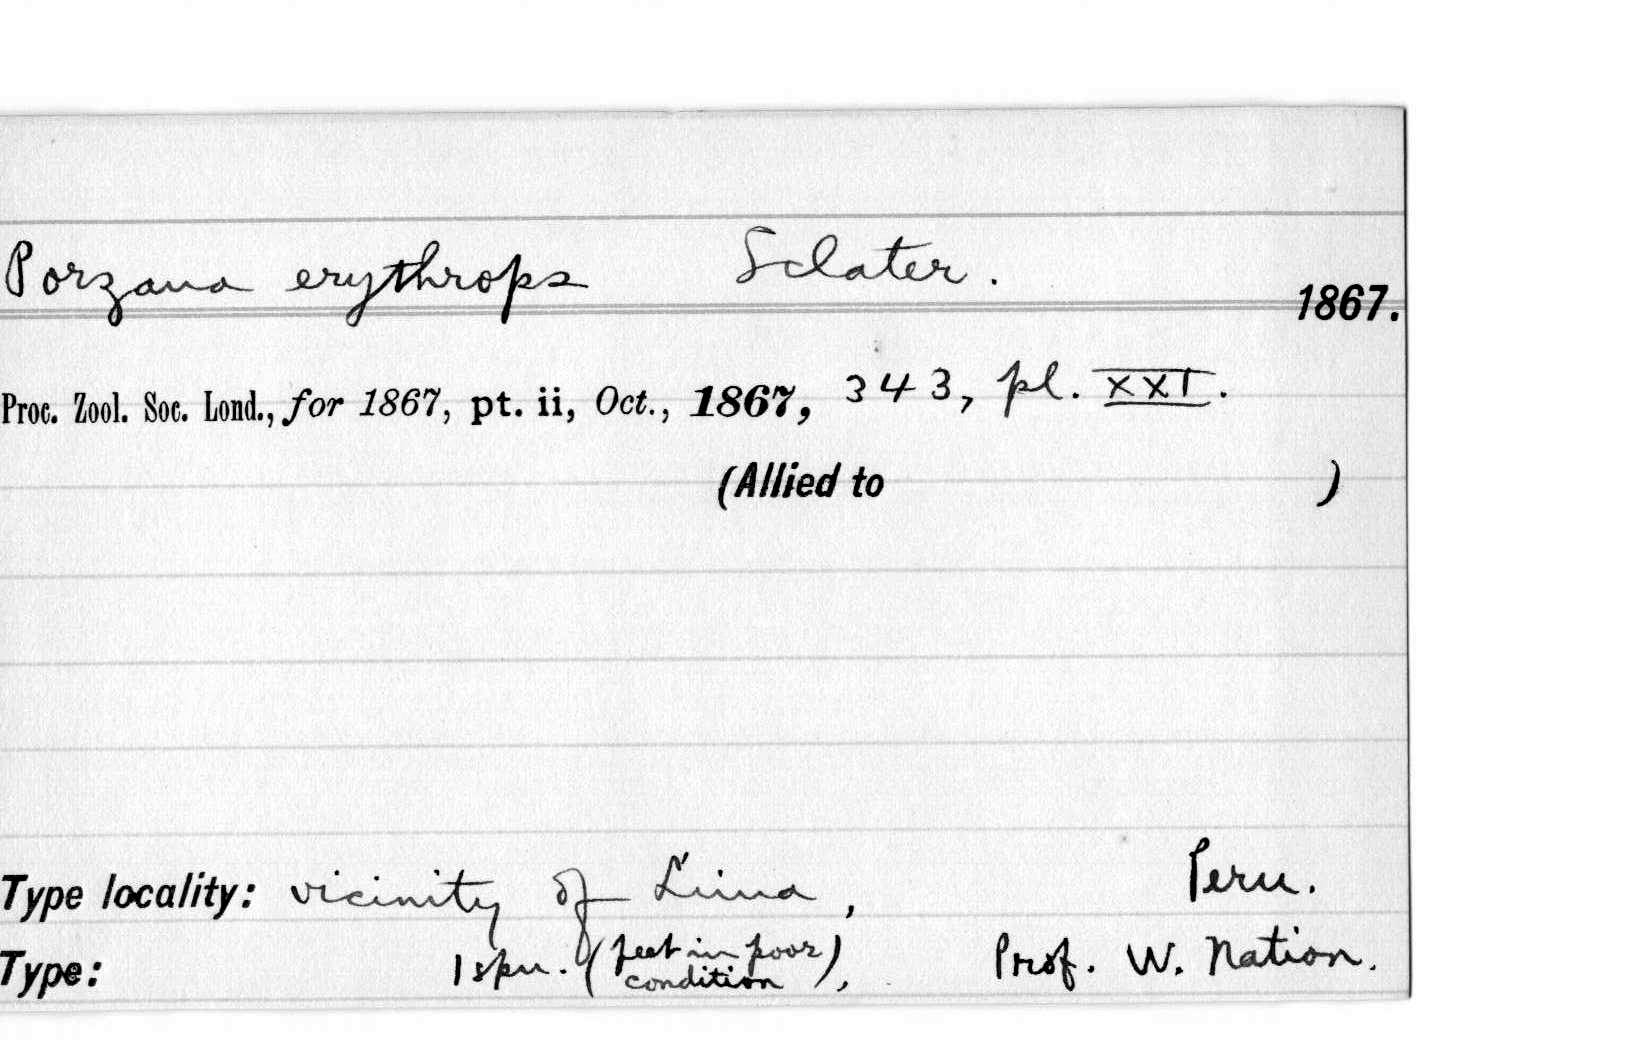 Porzana erythrops Sclater.
1867.
Proc. Zool. Soc. Lond., for 1867, pt. ii, Oct., 1867, 343, pl. XXI.
(Allied to )
Type locality: vicinity of Lima, Peru.
Type: 1 spn. (feet in poor condition), Prof. W. Nation.